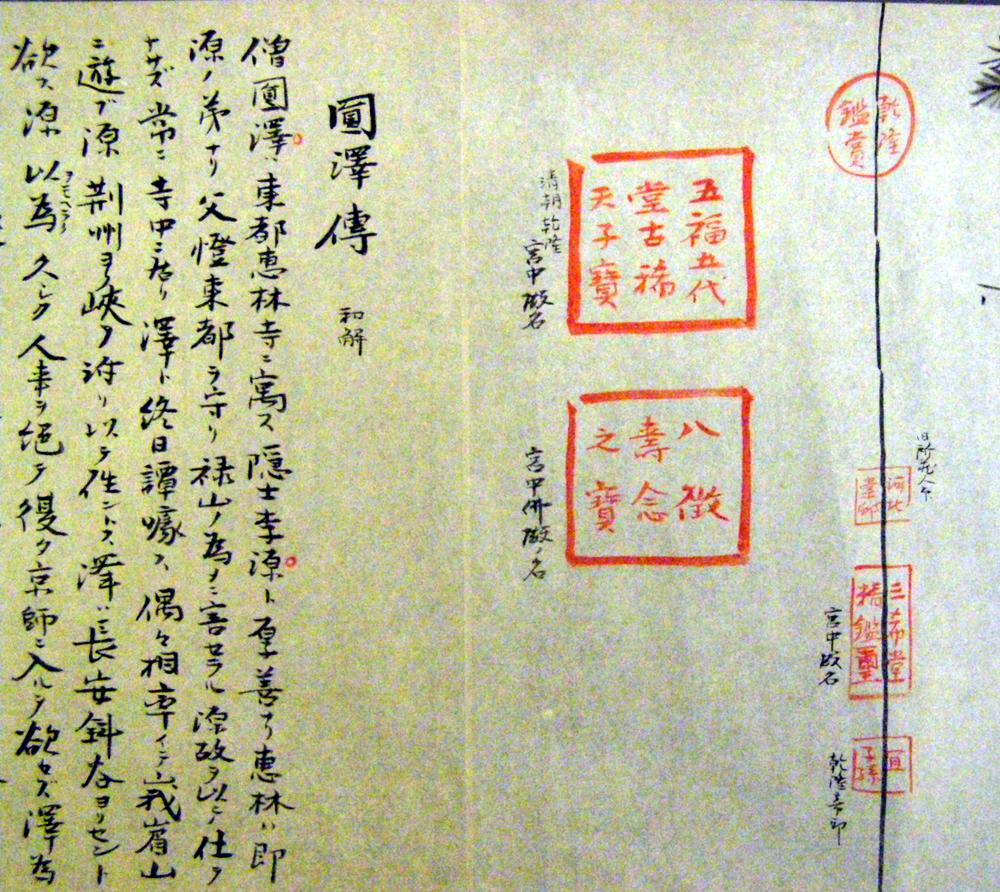 乾隆
鑑賞
三希堂
精鑑璽
宜
子孫
五福五代
堂古稀
天子寶
清朝乾隆
八徴
耄念
之寶
圓澤傳 和解
僧圓澤ハ東都恵林寺ニ寓ス隠士李源ト厚善ナリ恵林ハ即
源ノ弟ナリ父憕東都ヲ守リ禄山ノ為メニ害セラル源故ヲ以テ仕ヲ
ナサズ常ニ寺中ニ居リ澤ト終日譚噱ス偶々相率イテ峩眉山
ニ遊ブ源荊州ヨリ峽ヲ泝リ以テ往ントス澤ハ長安斜谷ヨリセント
欲ス源以為久シク人事ヲ絶テ復タ京師ニ入ルヲ欲セズ澤為